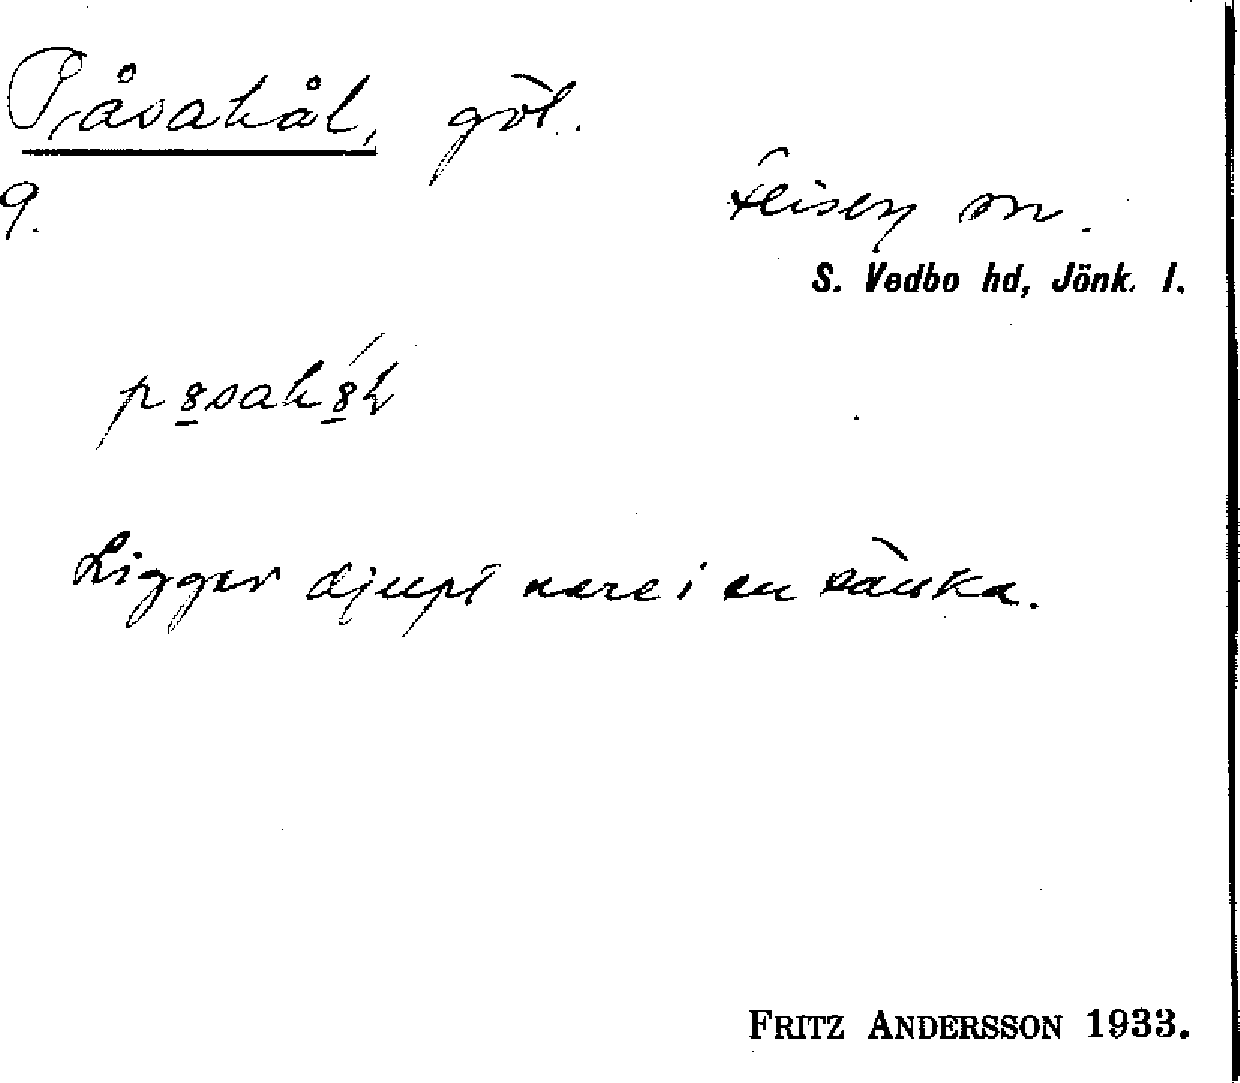 Påsahål, göl.
9.
Flisby sn.
S. Vedbo hd, Jönk. l.
Ligger djupt nere i en sänka.
FRITZ ANDERSSON 1933.